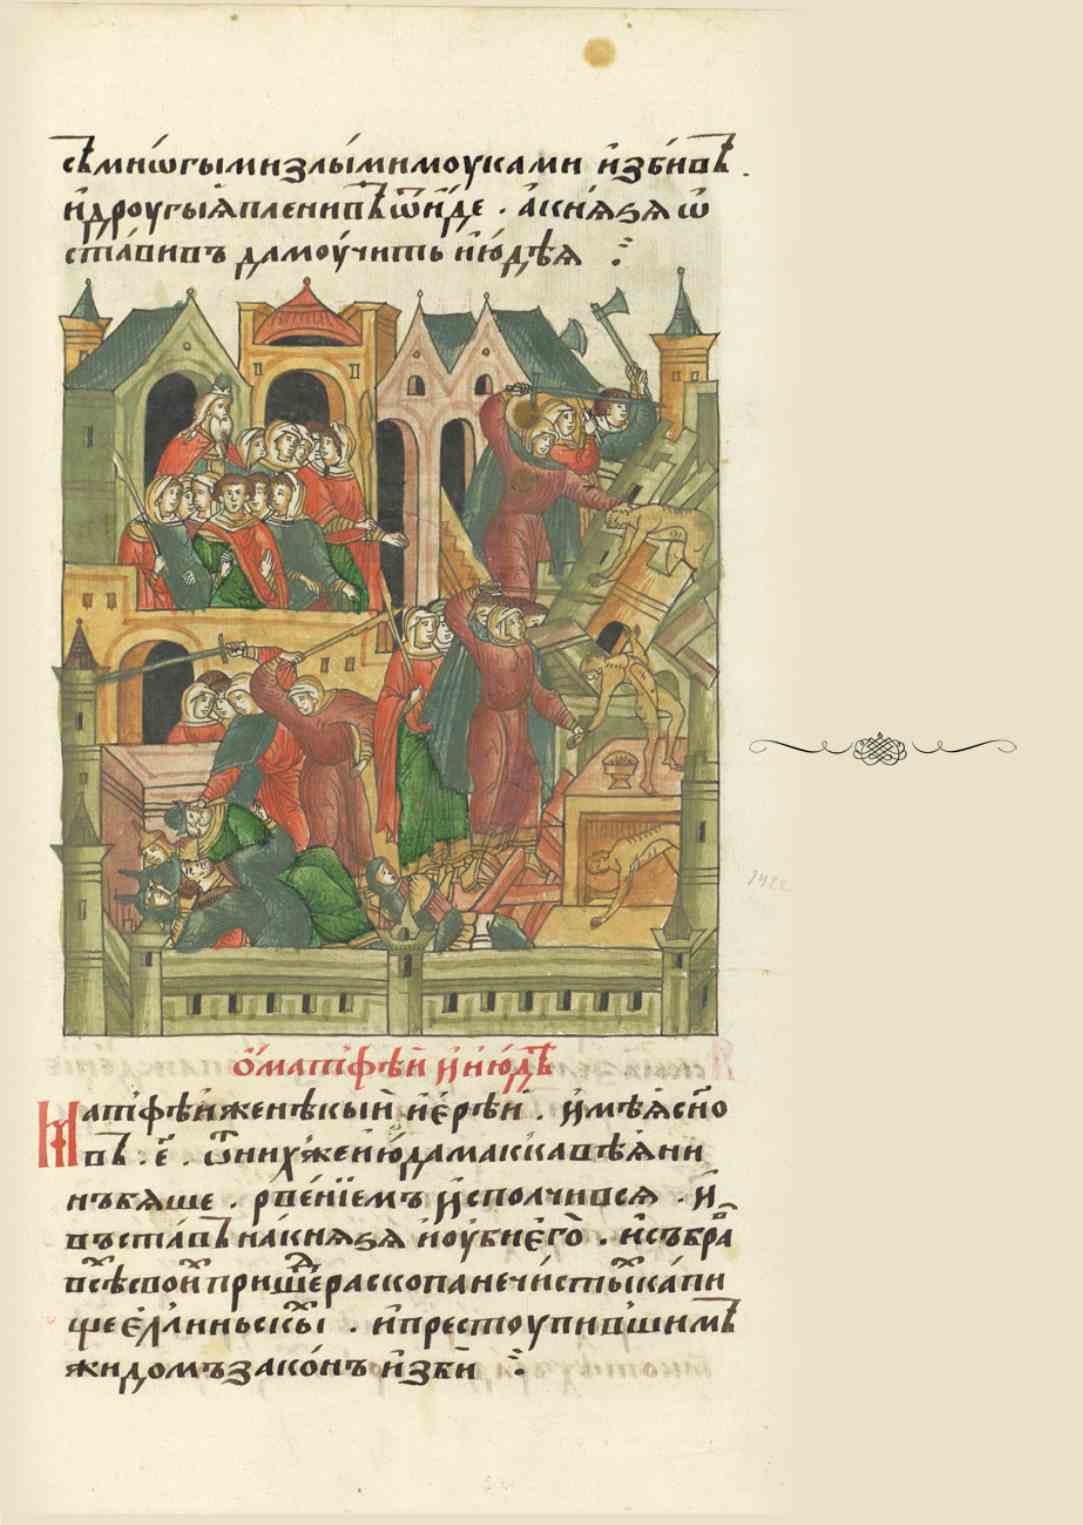 съ мнѡгыми злы́ми моуками и҆зби́въ .
и҆ дроугыѧ плени́въ ѿи́де . а҆ кнѧ́ѕѧ ѡ
ста́вивъ да моу́чить и҆ю́дѣѧ ⁖
ѡ҆ матѳѣи и҆ ию́дѣ
Матѳѣи же нѣкыи и҆ере́и . и҆мѣѧ сн҃о
въ . е҃ . ѿ ни́хже ию́да маккавѣѧни
нъ бѧше . рве́нїемъ и҆сполчивсѧ . и҆
въста́въ на кнѧѕѧ и҆ оу҆би е҆го̀ . и҆ събра
всѣ свои прише́д раскопа нечи́стых ка́пи
ще е҆ллиньскы́х . и҆ престоупившимъ
жидомъ зако́нъ и҆зби ⁖